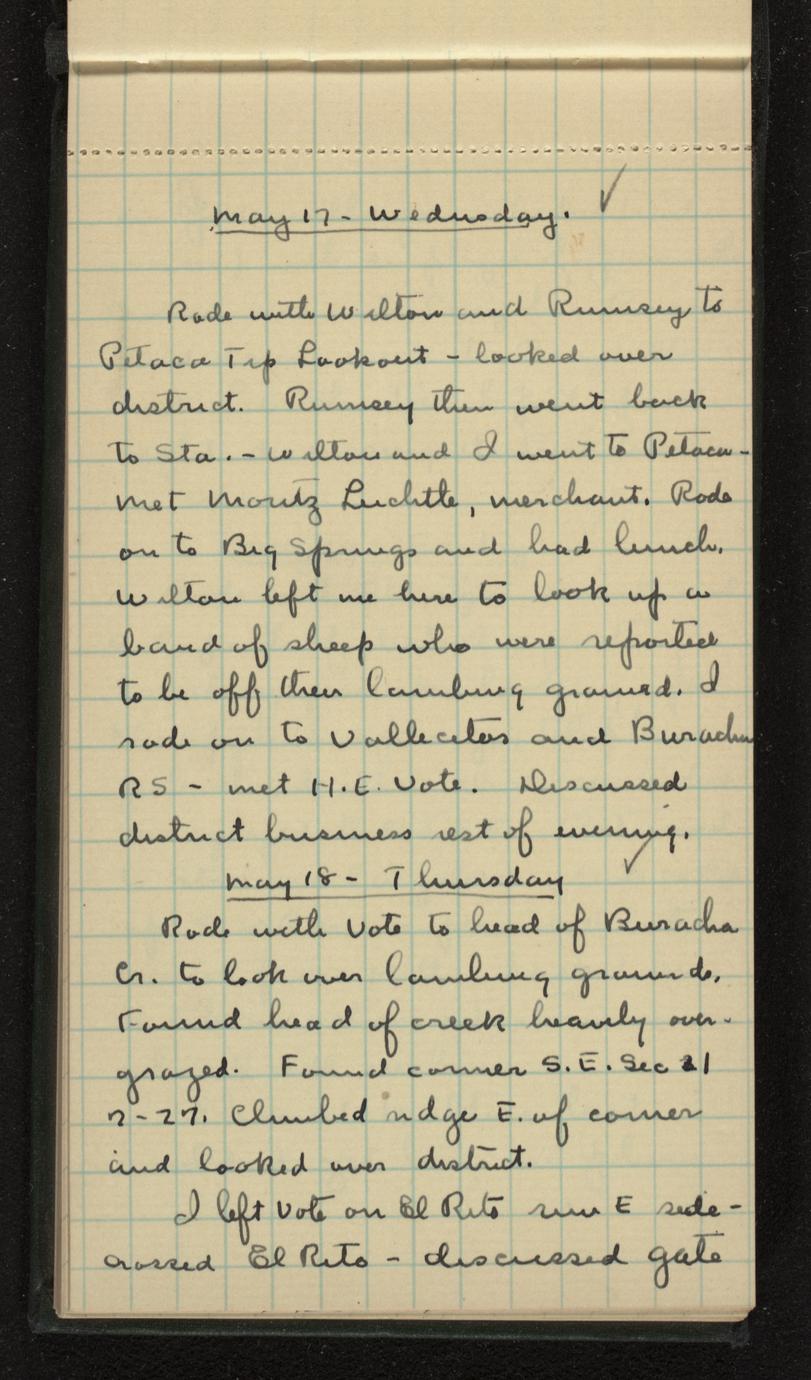 May 17 - Wednesday. ✓
Rode with Wilton and Rumsey to
Petaca Tip Lookout - looked over
district. Rumsey then went back
to Sta. - Wilton and I went to Petaca -
Met Moritz Luchtle, merchant. Rode
on to Big Springs and had lunch.
Wilton left me here to look up a
band of sheep who were reported
to be off their lambing ground. I
rode on to Vallecitos and Buracha
RS - met H.E. Vote. Discussed
district business rest of evening.
May 18 - Thursday ✓
Rode with Vote to head of Buracha
Cr. to look over lambing grounds.
Found head of creek heavily over-
grazed. Found corner S.E. Sec 21
7-27. Climbed ridge E. of corner
and looked over district.
I left Vote on El Rito run E side -
crossed El Rito - discussed gate